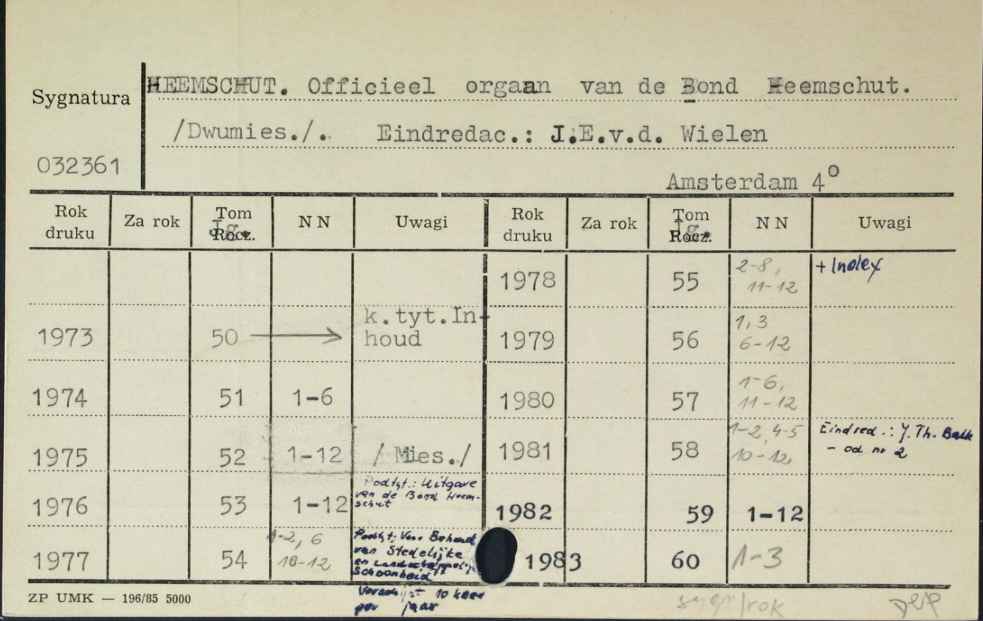 Sygnatura
HEEMSCHUT. Officieel orgaan van de Bond Heemschut.
/Dwumies./. Eindredac.: J.E.v.d. Wielen
032361
Amsterdam 4°
Rok druku Za rok Tom Jg. Rocz. NN Uwagi Rok druku Za rok Tom Jg. Rocz. NN Uwagi
1978 55 2-8, 11-12 + Index
1973 50 → k.tyt.Inhoud 1979 56 1,3 6-12
1974 51 1-6 1980 57 1-6, 11-12
1975 52 1-12 /Mies./ 1981 58 1-2, 4-5 10-12, Eindred.: J. Th. Balk - od nr 2
1976 53 1-12 Podtyt.: Uitgave van de Bond Heemschut 1982 59 1-12
1977 54 1-2, 6 10-12 Podtyt: Voor Behoud van Stedelijke en Landschappelijk Schoonheid 1983 60 1-3
Verschijnt 10 keer per jaar
ZP UMK — 196/85 5000
rok